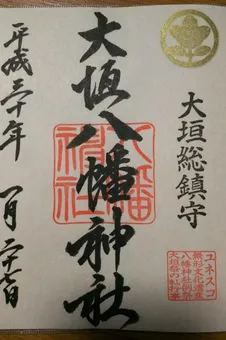 大垣総鎮守
ユネスコ
無形文化遺産
八幡神社例祭
大垣祭の軕行事
大垣八幡神社
八幡
神社
平成三十年 一月